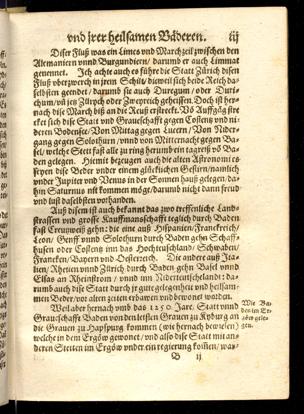 vnd jrer heilsamen Bäderen. iij
Diser Fluß was ein Limes vnd Marchzeil zwischen den
Alemaniern vnnd Burgundiern/ darumb er auch Limmat
genennet. Ich achte auch es führe die Statt Zürich disen
Fluß vberzwerch in jrem Schilt/ dieweil sich beide Reich daselb
selbsten gendet/ darumb sie auch Duregum/ oder Duri-
chum/ vñ jez Zürych oder Zweyreich geheissen. Doch ist her-
nach dise March biß an die Reuß erstreckt. Vō Auffgāg stre
cket sich dise Statt vnd Grauschafft gegen Costenz vnd ni-
deren Bodensee/ Von Mittag gegen Lucern/ Von Nider-
gang gegen Solothurn/ vnnd von Mitternacht gegen Ba-
sel/ welche Stett fast alle zu ring herumb ein tagreiß vō Ba
den gelegen. Hiemit bezeugen auch die alten Astronomi es
seyen dise Beder vnder einem glücklichen Gestirn/ namlich
vnder Jupiter vnd Venus in der Sonnen hauß gelegen da-
hin Saturnus nit kommen möge/ darumb nicht dann freud
vnd lust daselbsten vorhanden.
Auß disem ist auch bekannt das zwo treffenliche Land-
strassen vnd grosse Kauffmanschafft teglich durch Baden
fast Creuzweiß gehn: die eine auß Hispanien/ Franckreich/
Leon/ Genff vnnd Solothurn durch Baden gehn Schaff-
husen oder Costenz inn das Hochteutschland/ Schwaben/
Francken/ Bayern vnd Oesterreich. Die andere auß Ita-
lien/ Rhetien vnnd Zürich durch Baden gehn Basel vnnd
Elsas an Rheinstrom/ vnnd inn Niderteutschelandt: da-
rumb auch dise Statt durch jr gute gelegenheit vnd heilsam-
men Beder/ vor alten zeiten erbawen vnd bewonet worden.
Weil aber hernach vmb das 1250. Jare. Statt vnnd
Grauschafft Baden von den letsten Grauen zu Kyburg an
die Grauen zu Hapspurg kommen (wie hernach bewisen)
welche in dem Ergöw gewonet/ vnd also dise Statt mit an-
deren Stetten im Ergöw vnder ein regierung kom̃en/ war-
Wie Ba-
den im Er-
göw gele-
gen.
B ij